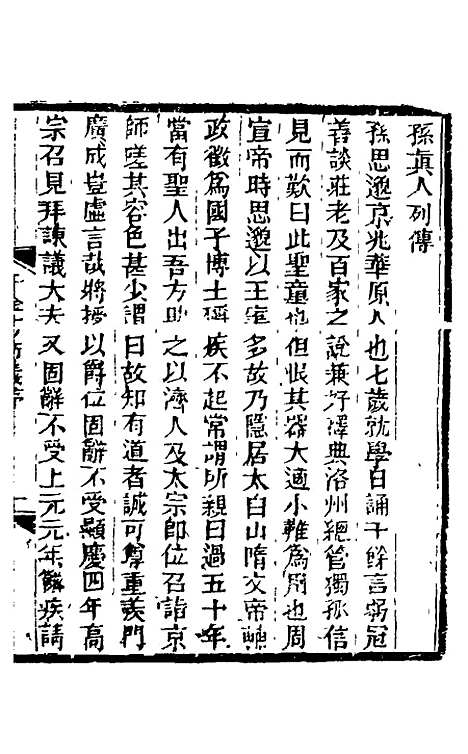 孫眞人列傳
孫思邈京兆華原人也七歲就學日誦千餘言弱冠
善談莊老及百家之說兼好釋典洛州緫管獨孤信
見而歎曰此聖童也但恨其器大適小難爲用也周
宣帝時思邈以王室多故乃隱居太白山隋文帝輔
政徵爲國子博士稱疾不起常謂所親曰過五十年
當有聖人出吾方助之以濟人及太宗即位召詣京
師嗟其容色甚少謂曰故知有道者誠可尊重羨門
廣成豈虛言哉將授以爵位固辭不受顯慶四年高
宗召見拜諫議大夫又固辭不受上元元年辭疾請